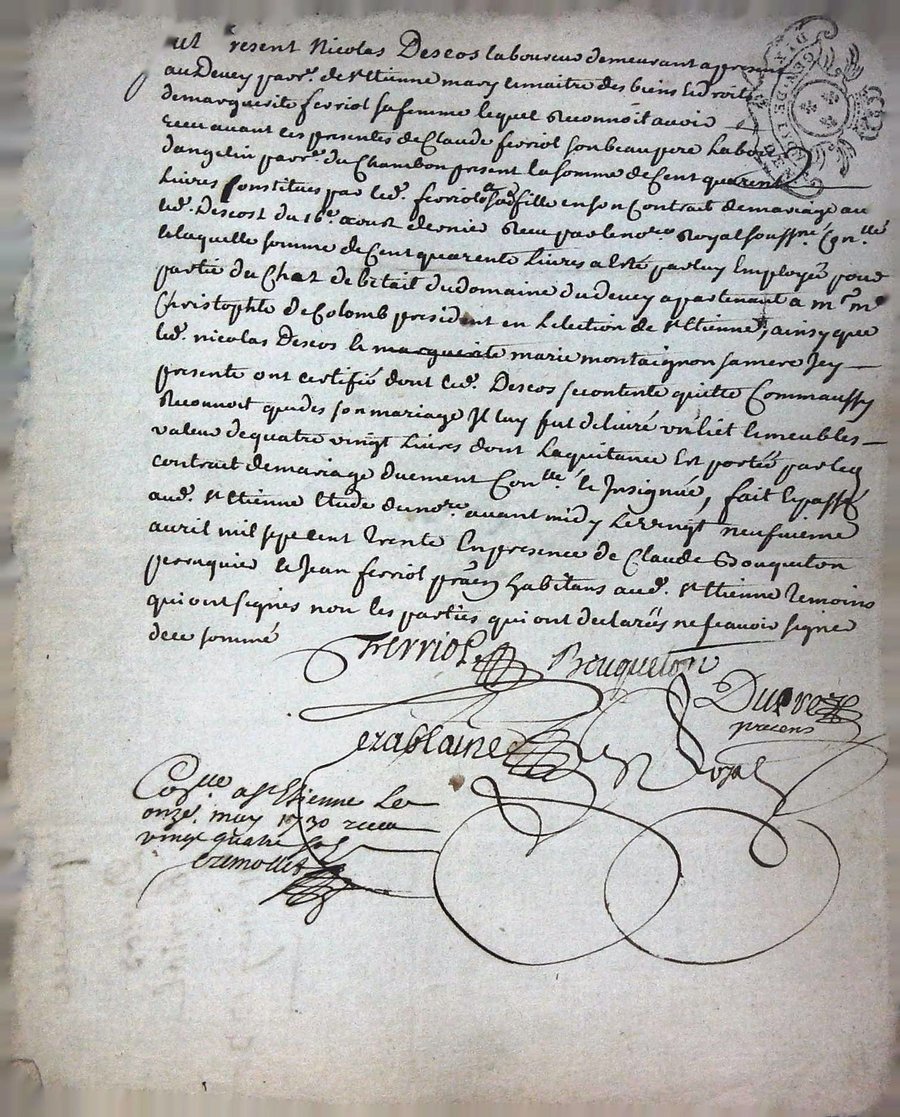 ut resent Nicolas Descos laboureur demeurant a present
au Devey parr.e de St Etienne mary et maitre des biens et droits
de marguerite ferriol sa femme lequel Reconnoit avoir
receu avant ces presentes de Claude ferriol son beau pere Labor
dangelin parr.e du Chambon present la somme de Cent quarente
Livres Constitues par led. ferriol a sad fille en son Contrat de mariage au
ud. Descost du 16e aoust dernier Receu par le no.re Royal soussne Con.llé
Laquelle somme de Cent quarente Livres a esté par luy Employée pour
partie du Chat de bétail du domaine du devey apartenant a mr me
Christophle de Colomb president en Lelection de St Etienne, ainsy que
led. nicolas Descos et marguerite marie montaignon sa mere Icy
presente ont certiffié dont led. Descos se contente quitte Comm aussy
Reconnoit que des son mariage Il luy fut delivré un liet et meubles
valeur de quatre vingt Livres dont Laquitance Est portée par led
contrat de mariage duement Con.llé et Insignué, fait et passé
aud. St Etienne Etude du no.re avant midy le vingt neufvieme
avril mil sept cent trente En presence de Claude Bouqueton
perruquier et Jean ferriol prãen habitans aud. St Etienne temoins
qui ont signés non les parties qui ont declarés ne scavoir signe
de ce sommé
ferriol Bouqueton
Dupre
pracens
erablaine Royal
Con.lle a St Etienne Le
onze. may 1730 receu
vingt quatre sols
eramollet